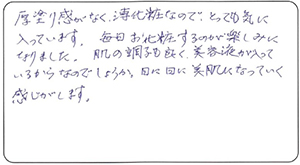 厚塗り感がなく、薄化粧なので、とっても気に
入っています。毎日お化粧するのが楽しみに
なりました。肌の調子も良く、美容液が入って
いるからなのでしょうか、日に日に美肌になっていく
感じがします。